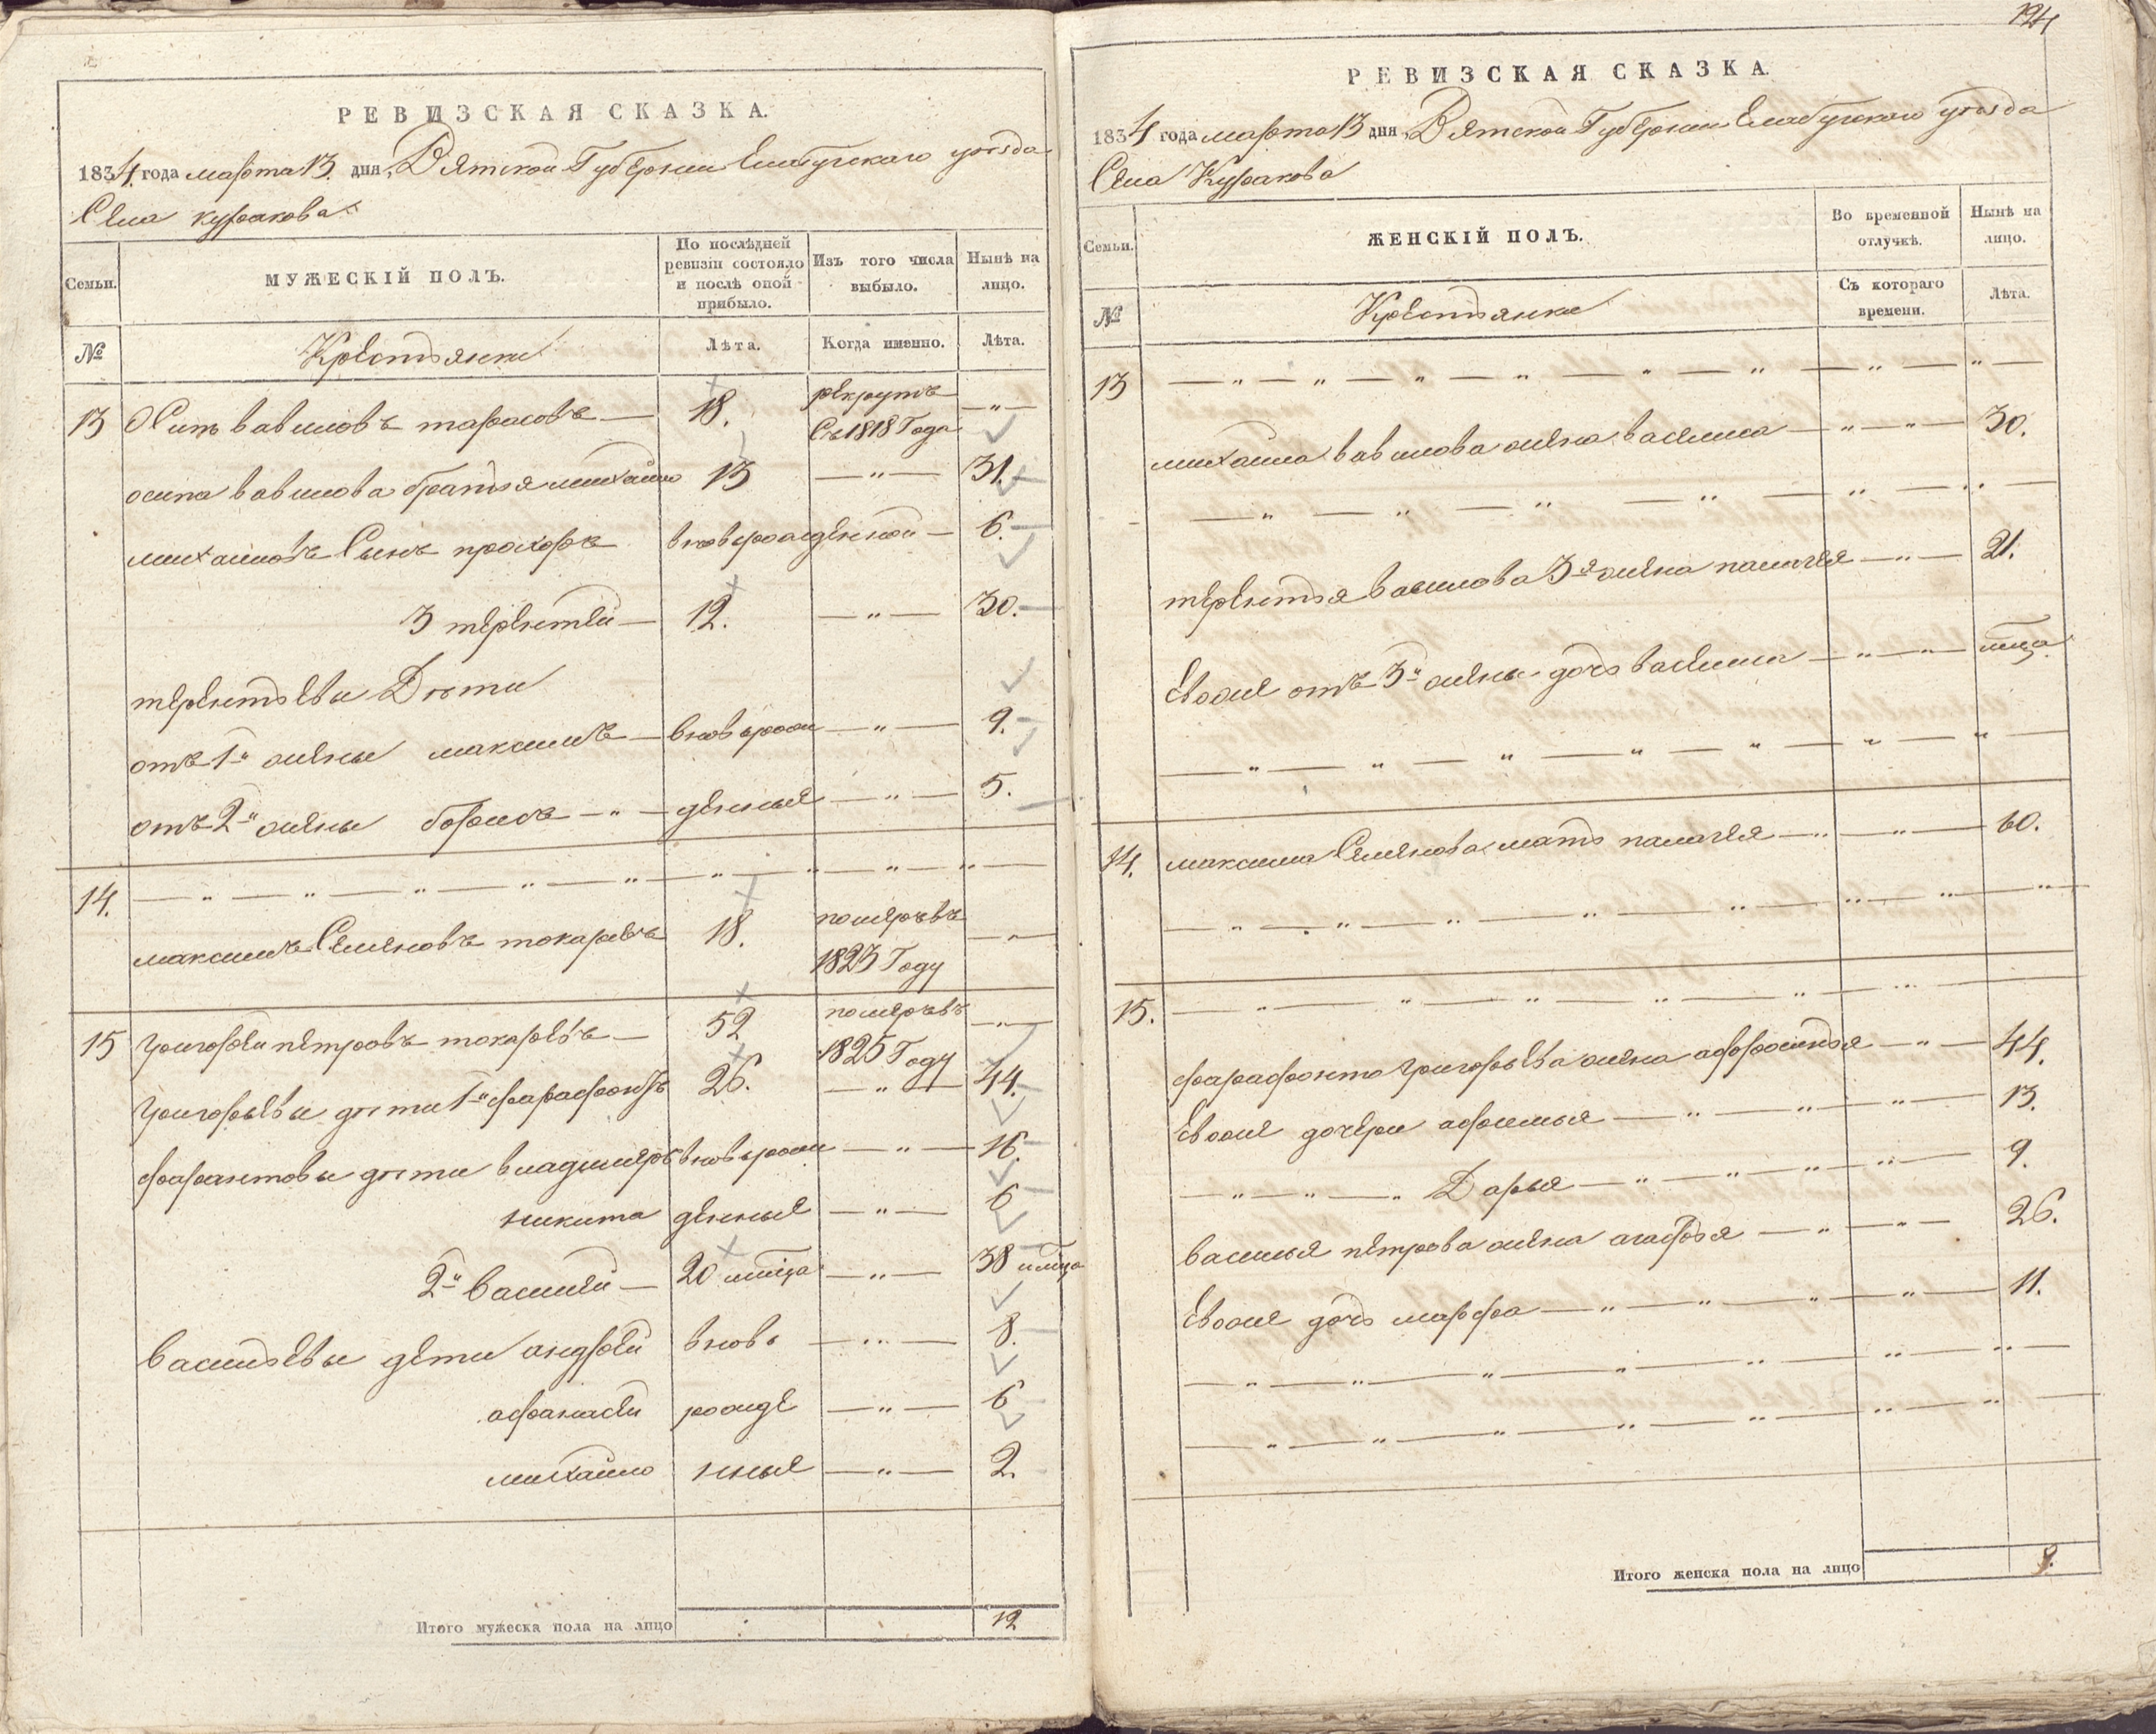 РЕВИЗСКАЯ СКАЗКА.
1834 года марта 13. дня, Вятской Губернии Елабужскаго уѣзда
Села куракова
Семьи.
МУЖЕСКІЙ ПОЛЪ.
По послѣдней ревизіи состояло и послѣ оной прибыло.
Изъ того числа выбыло.
Нынѣ на лицо.
№
Крестьяни
Лѣта.
Когда именно.
Лѣта.
13 Осипъ вавиловъ тарасовъ — 18. рекрутъ съ 1818 Года — „ —
осипа вавилова братья михайло 13 — „ — 31.
михайловъ Сынъ прохоръ вновьрожденной — 6.
3 терентей — 12. — „ — 30.
терентьевы Дѣти
отъ 1й жены максимъ — вновьрож — „ — 9.
отъ 2й жены борисъ — „ — денные — „ — 5.
14. — „ — „ — „ — „ — „ — „ — „ — „ — „ —
максимъ Семеновъ токаревъ 18. померъ въ 1823 Году — „ —
15 григорей петровъ токаревъ — 52 померъ въ 1825 Году — „ —
григорьевы дѣти 1й фарафонтъ 26. — „ — 44.
фарафонтовы дѣти владимеръ вновьрож — „ — 16.
никита денные — „ — 6
2й василей — 20 — „ — 38
васильевы дети андрей вновь — „ — 8.
афанасей рожде — „ — 6
михайло нные — „ — 2.
Итого мужеска пола на лицо 12
194
РЕВИЗСКАЯ СКАЗКА.
1834 года марта 13 дня, Вятской Губернии Елабужскаго уѣзда
Села Куракова
Семьи.
ЖЕНСКІЙ ПОЛЪ.
Во временной отлучкѣ.
Нынѣ на лицо.
№
Крестьянки
Съ котораго времени.
Лѣта.
13 — „ — „ — „ — „ — „ — „ — „ — „ —
михайла вавилова жена василиса — „ — „ — 30.
— „ — „ — „ — „ — „ — „ —
терентья вавилова 3я жена палагея — „ — 21.
Евоже отъ 3й жены дочь василиса — „ — „ —
— „ — „ — „ — „ — „ — „ — „ —
14. максима Семенова мать палагея — „ — „ — 60.
— „ — „ — „ — „ — „ — „ — „ —
15. — „ — „ — „ — „ — „ — „ —
фарафонта григорьева жена афросинья — „ — 44.
Евоже дочери афимья — „ — „ — „ — 13.
— „ — „ — „ Дарья — „ — „ — „ — „ — 9.
василья петрова жена агафья — „ — „ — 26.
Евоже дочь марфа — „ — „ — „ — „ — 11.
— „ — „ — „ — „ — „ — „ — „ —
— „ — „ — „ — „ — „ — „ — „ —
Итого женска пола на лицо 9.